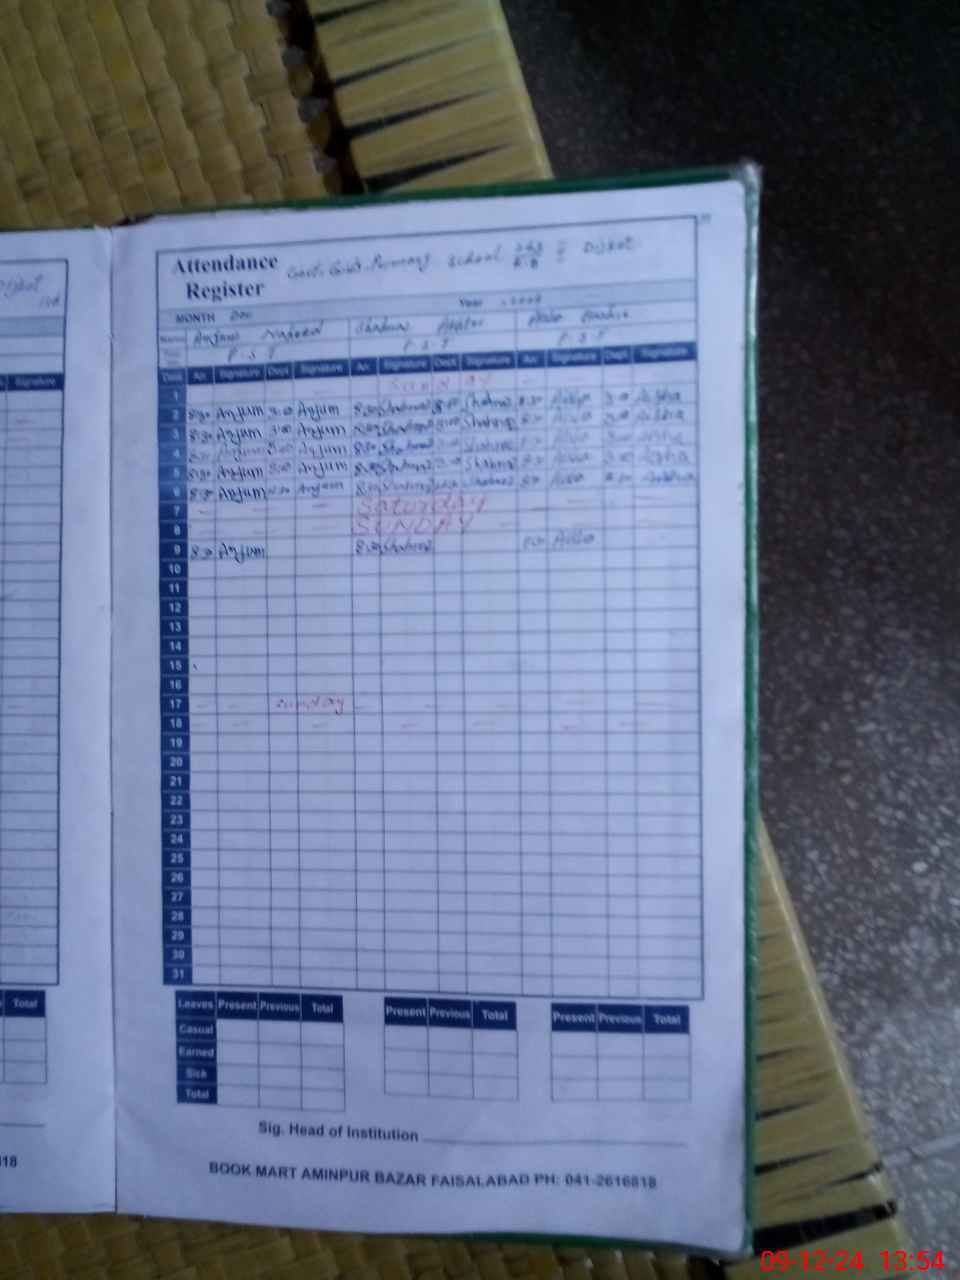 Attendance
Register
Govt. Girls Primary School 263 R-B Dijkot
MONTH Dec Year
Name Anjum Naheed Shahnaz Akhtar
P.S.T P.S.T P.S.T
Date Arr. Signature Dept. Signature Arr. Signature Dept. Signature Arr. Signature Dept. Signature
1 Sunday
2 8:30 Anjum 3:00 Anjum 8:30 Shahnaz 3:00 Shahnaz 8:30 3:00
3 8:30 Anjum 3:00 Anjum 8:30 Shahnaz 3:00 Shahnaz 8:30 3:00
4 8:30 Anjum 3:00 Anjum 8:30 Shahnaz 3:00 Shahnaz 8:30 3:00
5 8:30 Anjum 3:00 Anjum 8:30 Shahnaz 3:00 Shahnaz 8:30 3:00
6 8:30 Anjum Anjum 8:30 Shahnaz Shahnaz 8:30
7 — — — Saturday — —
8 — — — SUNDAY — —
9 8:30 Anjum 8:30 Shahnaz 8:30
10
11
12
13
14
15
16
17 — — Sunday — — — — — —
18 — — — — — — —
19
20
21
22
23
24
25
26
27
28
29
30
31
Leaves Present Previous Total Present Previous Total Present Previous Total
Casual
Earned
Sick
Total
Sig. Head of Institution
BOOK MART AMINPUR BAZAR FAISALABAD PH: 041-2616818
Signature
Total
818
09-12-24 13:54